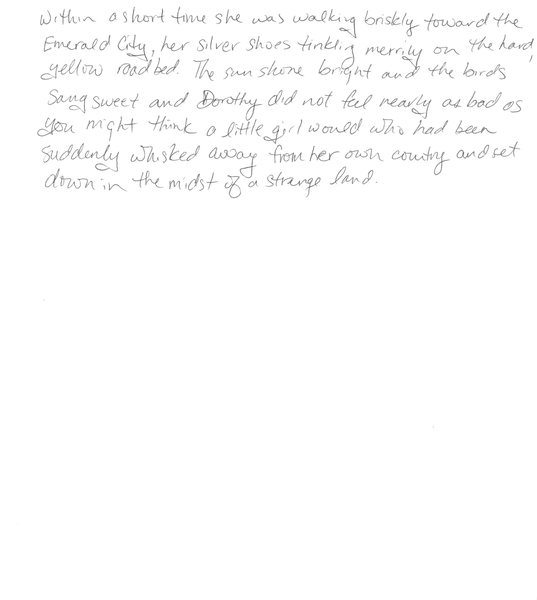 Within a short time she was walking briskly toward the
Emerald City, her silver shoes tinkling merrily on the hard,
yellow roadbed. The sun shone bright and the birds
Sang sweet and Dorothy did not feel nearly as bad as
you might think a little girl would who had been
suddenly whisked away from her own country and set
down in the midst of a strange land.